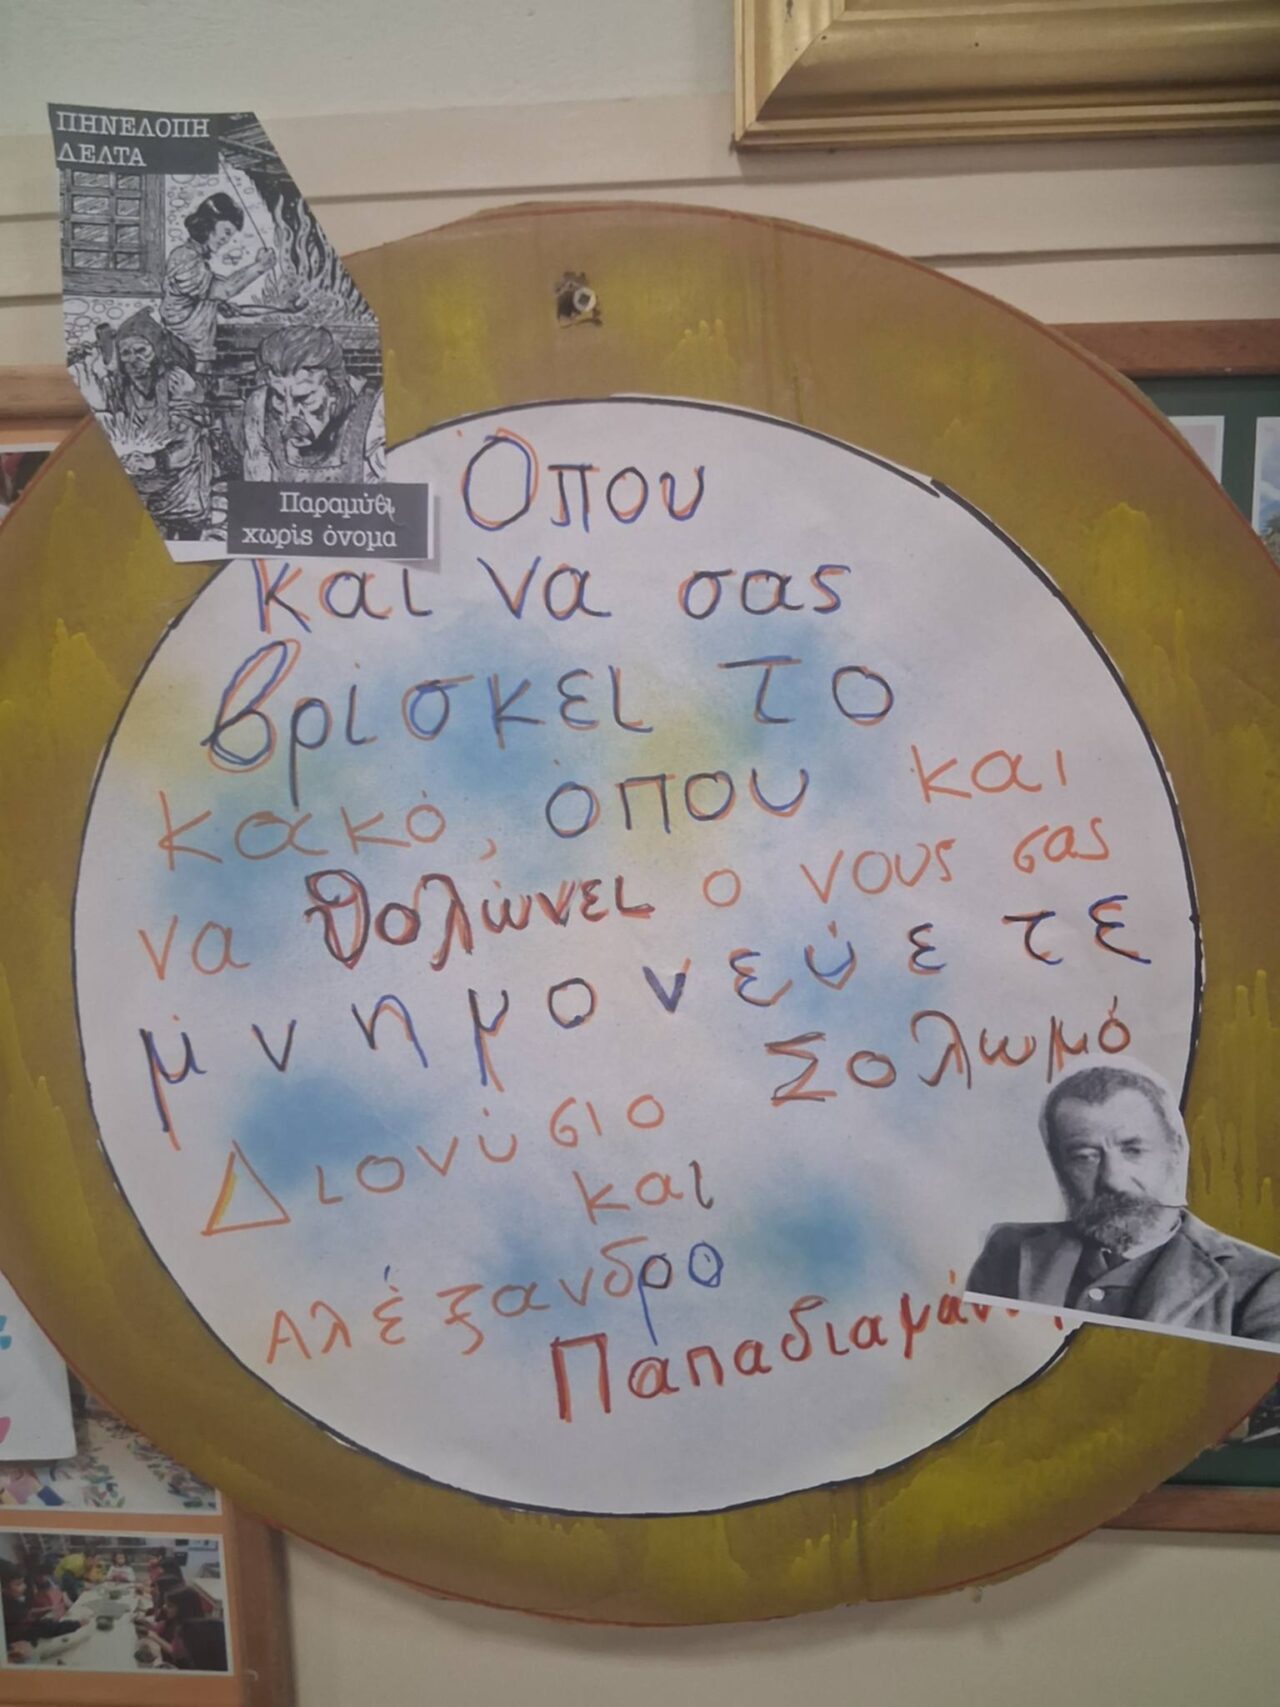 ΠΗΝΕΛΟΠΗ
ΔΕΛΤΑ
Παραμύθι
χωρίς όνομα
Όπου
και να σας
βρίσκει το
κακό, όπου και
να θολώνει ο νους σας
μνημονεύετε
Διονύσιο Σολωμό
και
Αλέξανδρο